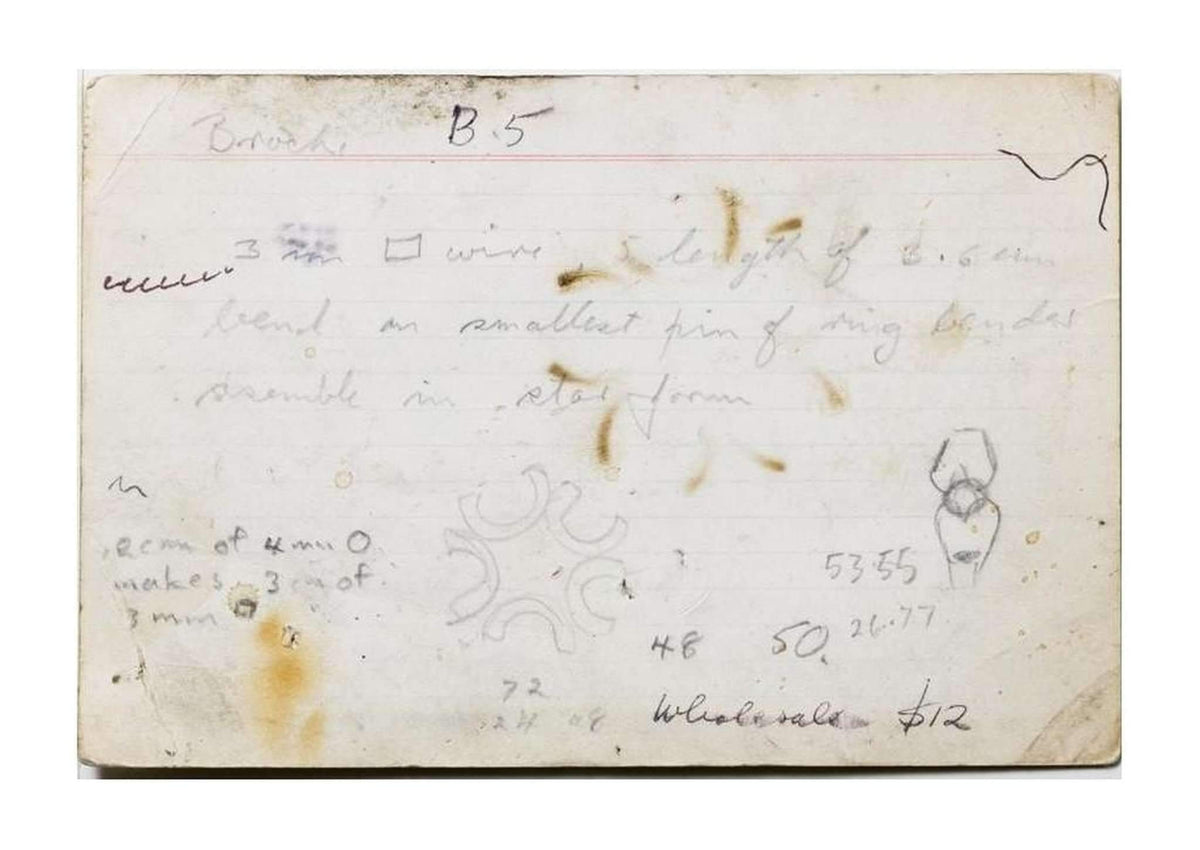 Brooch B.5
3 mm □ wire, 5 length of 3.6 cm
bend on smallest pin of ring bender
assemble in star form
2 cm of 4 mm O
makes 3 cm of
3 mm □
53.55
48 50. 26.77
72
24
Wholesale $12